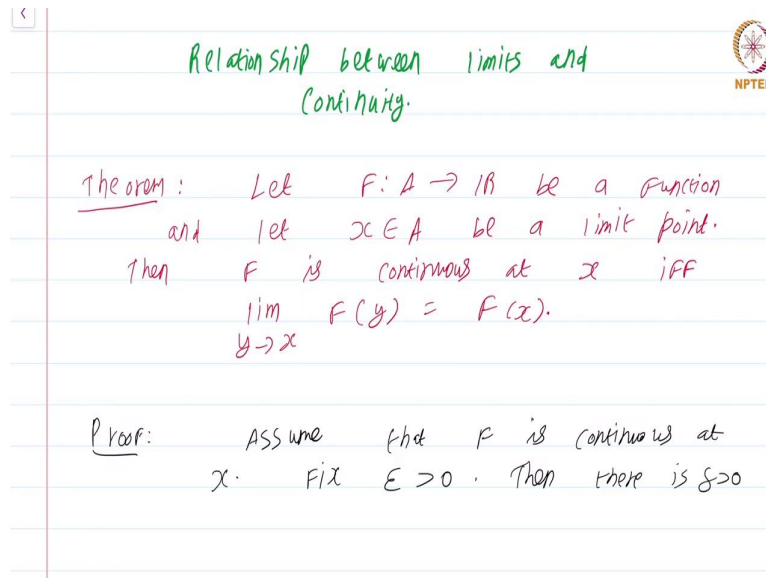 Relationship between limits and
Continuity.
NPTE
Theorem: Let F: A → IR be a Function
and let x ∈ A be a limit point.
Then F is continuous at x iFF
lim F(y) = F(x).
y→x
Proof: Assume that F is continuous at
x. Fix ε > 0. Then there is δ>0